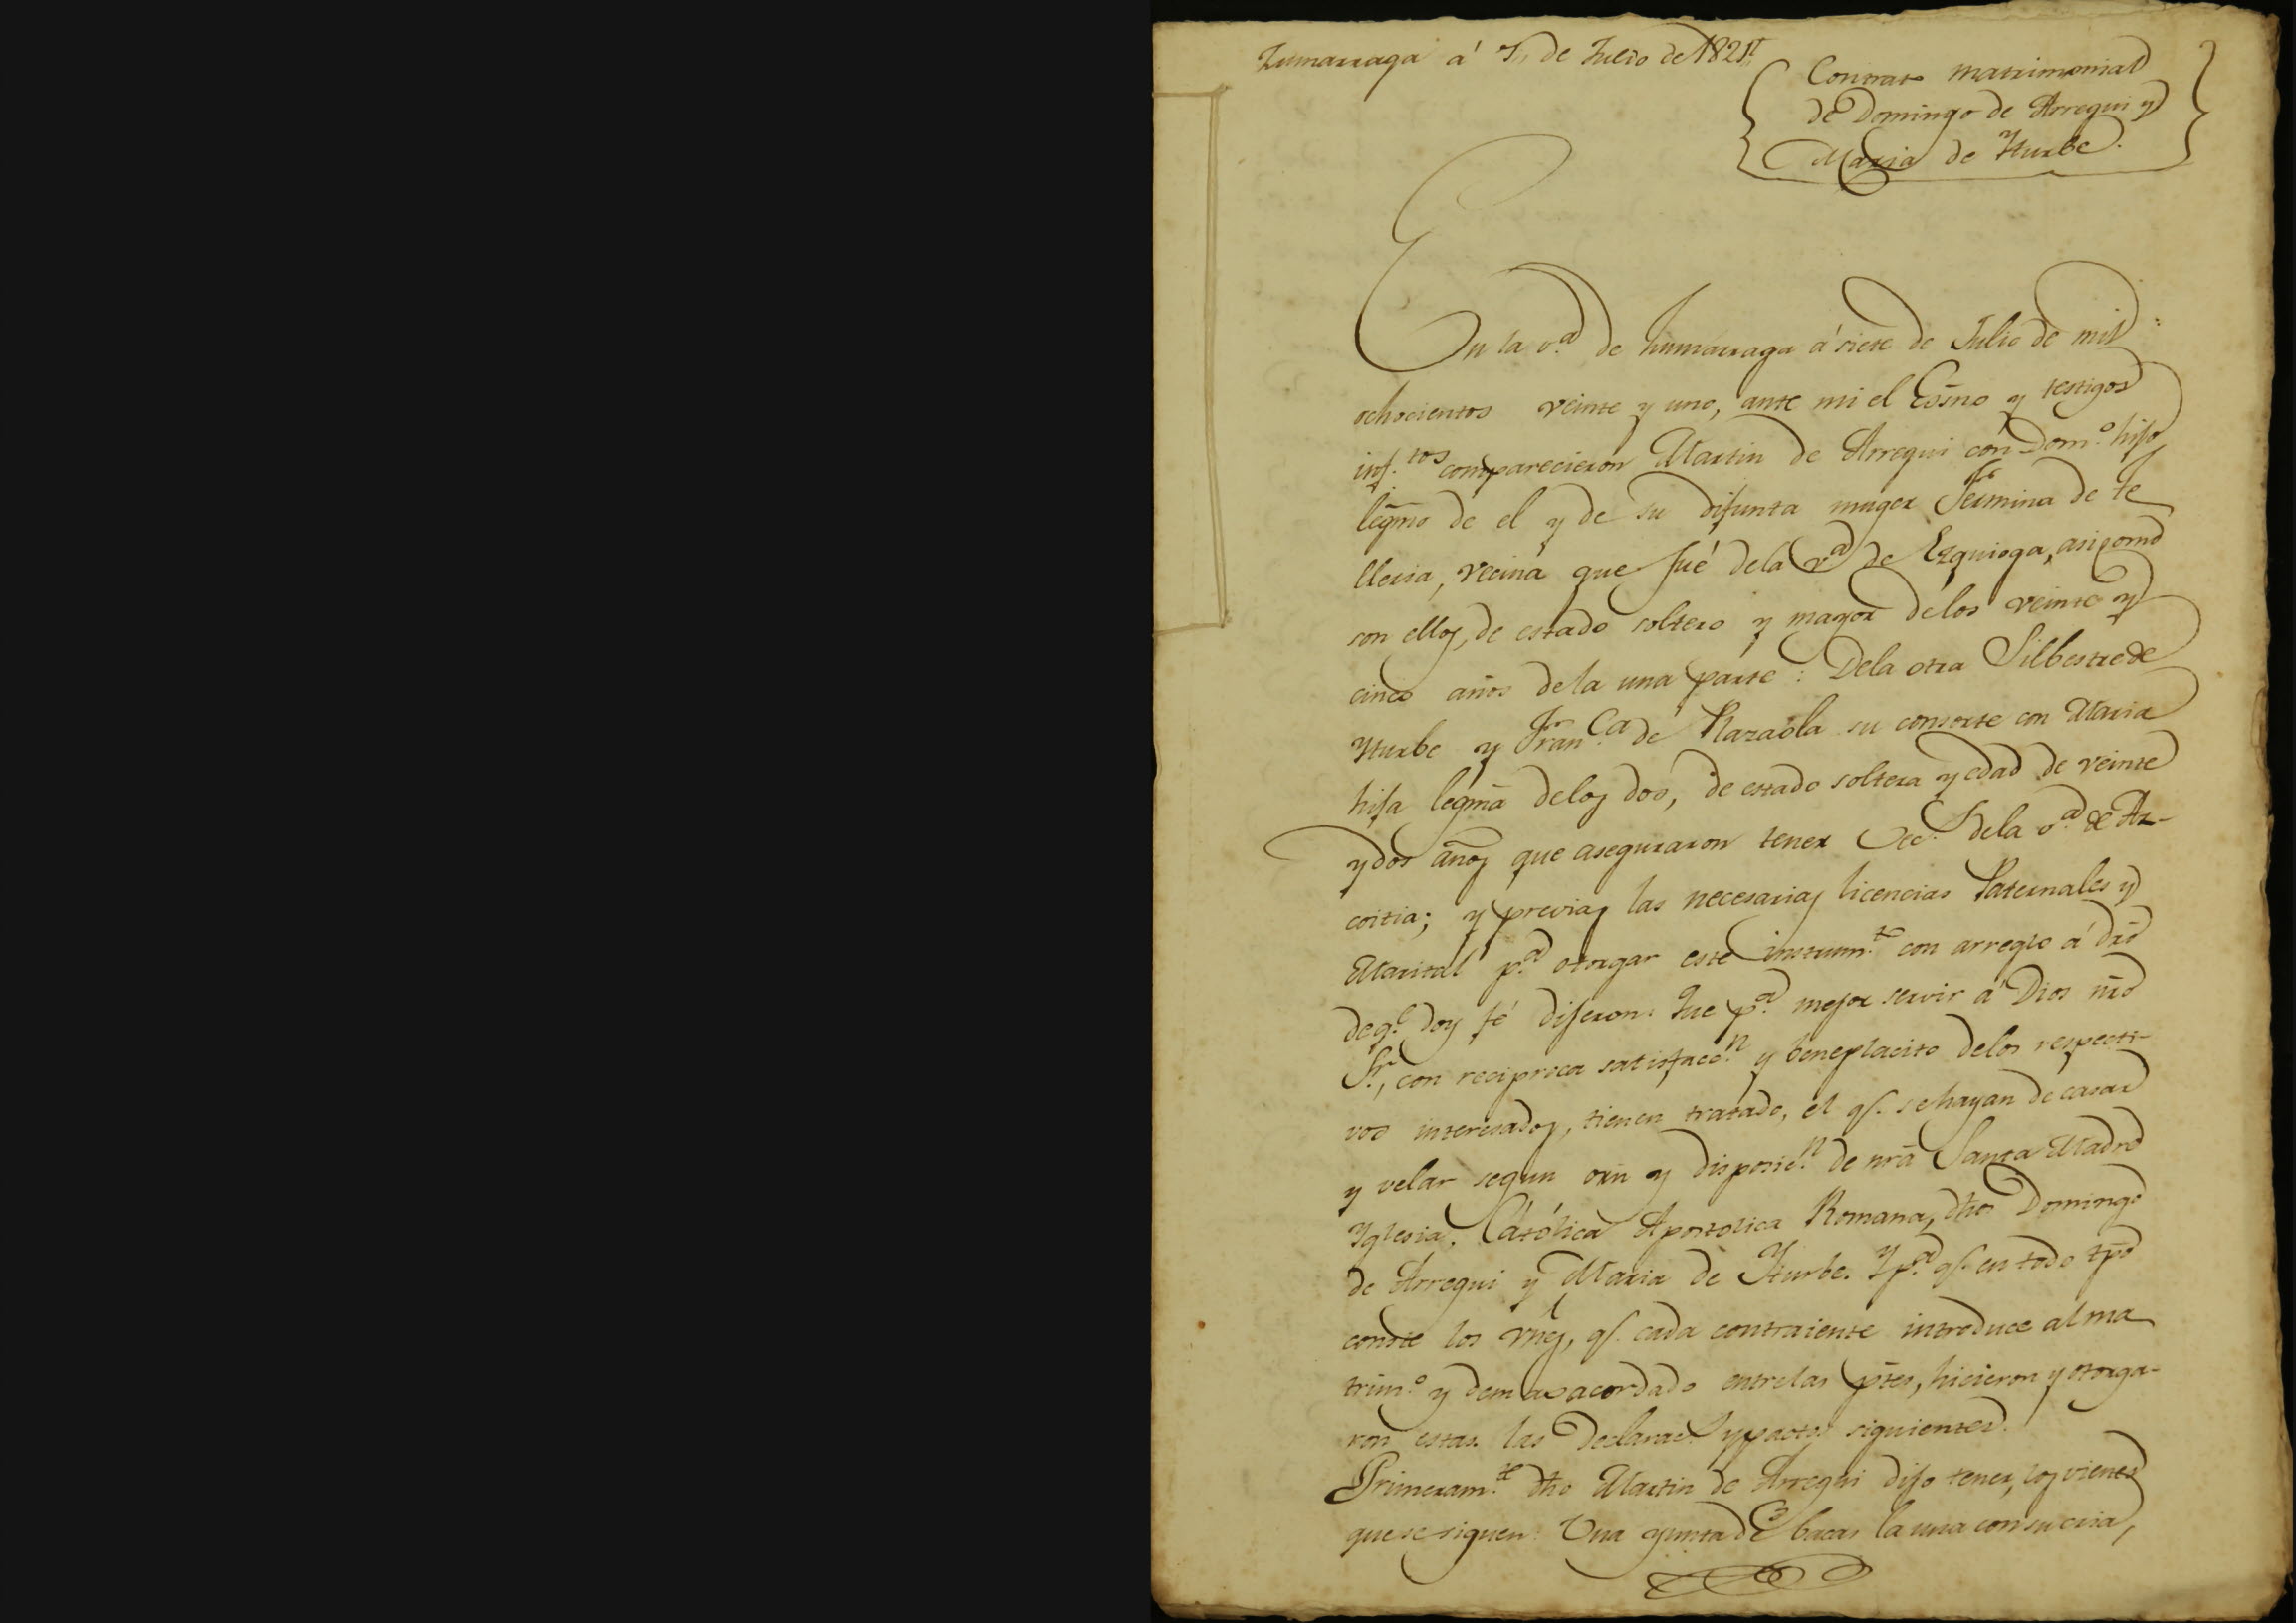 Zumarraga á 7,, de Julio de 1821
Contrato matrimonial
de Domingo de Arregui y
Maria de Yturbe.
En la v.ª de Zumarraga á siete de Julio de mil
ochocientos veinte y uno, ante mi el Esño y testigos
inf.tos comparecieron Martin de Arregui con Dom.º hijo
legmo de el y de su difunta muger Fermina de Te
lleria, vecina que fué dela v.ª de Ezquioga, asi como
son ellos, de estado soltero y mayor delos veinte y
cinco años dela una parte: Dela otra Silbestre de
Yturbe y Fran.ca de su consorte con Maria
hija legmã delos dos, de estado soltera y edad de veinte
y dos años que aseguraron tener vec.s dela v.ª de Az-
coitia; y previas las necesarias licencias Paternales y
Marital p.ª otorgar este instrum.te con arreglo á dro
deq.e doy fé dijeron: Que p.ª mejor servir á Dios nro
Sr., con reciproca satisfacc.n y beneplacito delos respecti-
vos interesados, tienen tratado, el q.e se hayan de casar
y velar segun orñ y disposic.n de nrã Santa Madre
Yglesia, Católica Apostolica Romana, dhos Domingo
de Arregui y Maria de Yturbe. Y p.ª q.e en todo tpõ
conste los vñes, q.e cada contraiente introduce al ma
trim.º y demas acordado entrelas ptes, hicieron y otorga-
ron estas. las Declarac.s y pactos siguientes.
Primeram.te dho Martin de Arregui dijo tener, los vienes
que se siguen: Una yunta de bacas la una con su cria,